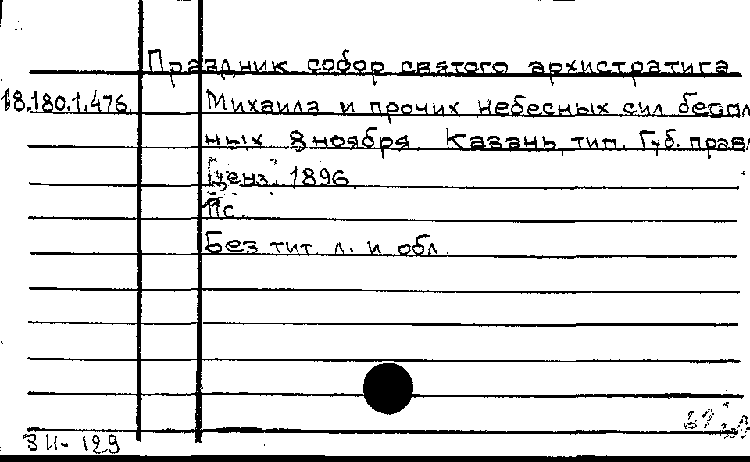 Праздник собор святого архистратига
18.180.1.476 Михаила и прочих небесных сил беспл
ных 8 ноября. Казань, тип. Губ. прав
[ценз. 1896]
11с.
Без тит. л. и обл.
ЗИ-129